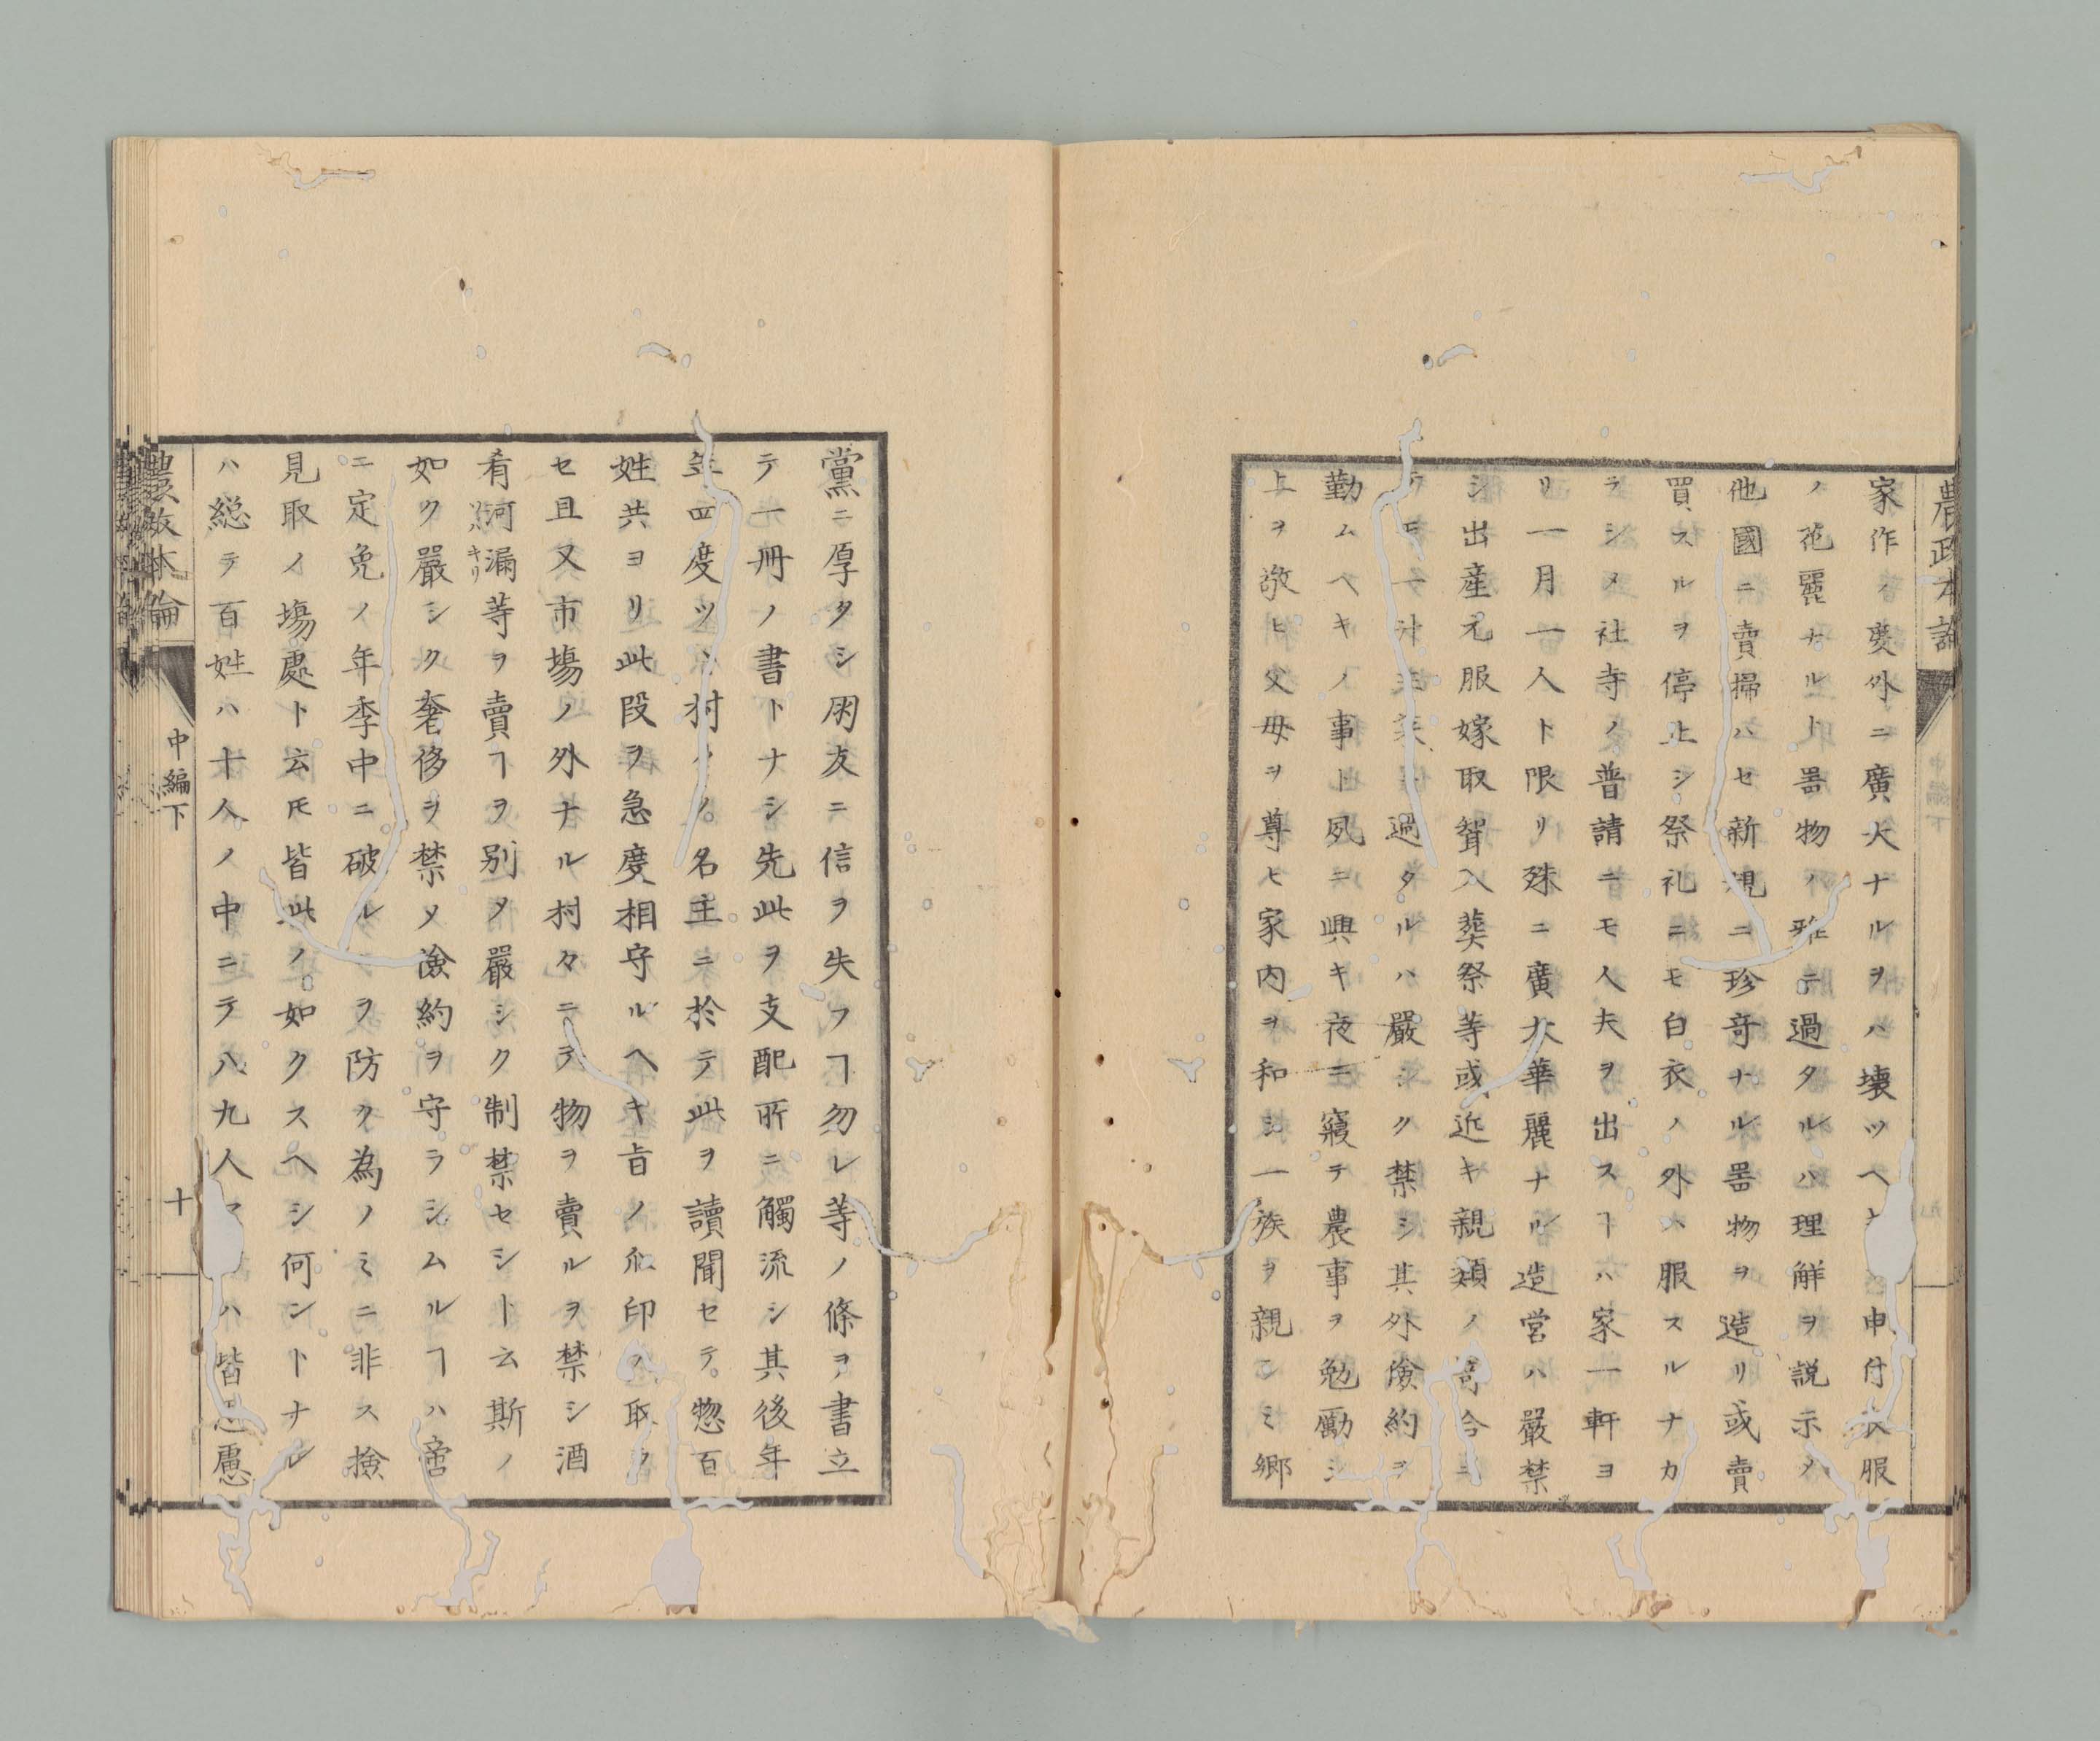 農政本論
家作ノ奧外ニ廣大ナルヲハ壊ツヘ申付衣服
ノ花麗ナルト噐物ノ雅ニ過タルハ理解ヲ説示メ
他國ニ賣掃ハセ新規ニ珍奇ナル噐物ヲ造リ或賣
買スルヲ停止シ祭礼ニモ白衣ノ外ハ服スルナカ
ラシメ社寺ノ普請ニモ人夫ヲ出スヿハ家一軒ヨ
リ一月一人ト限リ殊ニ廣大華麗ナル造営ハ嚴禁
シ出産元服嫁取聟入葬祭等或近キ親類ノ寄合ニ
テモ一汁三菜過タルハ嚴シク禁シ其外儉約ヲ
勤ムヘキノ事ト夙ニ興キ夜ニ寢テ農事ヲ勉勵シ
上ヲ敬ヒ父母ヲ尊ヒ家内ヲ和シ一族ヲ親シミ郷
黨ニ厚クシ朋友ニ信ヲ失フヿ勿レ等ノ條ヲ書立
テ一冊ノ書トナシ先此ヲ支配所ニ觸流シ其後年
年四度ツヽ村々ノ名主ニ於テ此ヲ讀聞セテ惣百
姓共ヨリ此段ヲ急度相守ルヘキ旨ノ爪印ヲ取ラ
セ且又市塲ノ外ナル村々ニテ物ヲ賣ルヲ禁シ酒
肴河漏キリ等ヲ賣ヿヲ別メ嚴シク制禁セシト云斯ノ
如ク嚴シク奢侈ヲ禁メ儉約ヲ守ラシムルヿハ啻
ニ定免ノ年季中ニ破ルヲ防ク為ノミニ非ス撿
見取ノ塲處ト云𪜈皆此ノ如クスヘシ何ントナレ
ハ総テ百姓ハ十人ノ中ニテ八九人ハ皆愚
農政本論
中編下
十